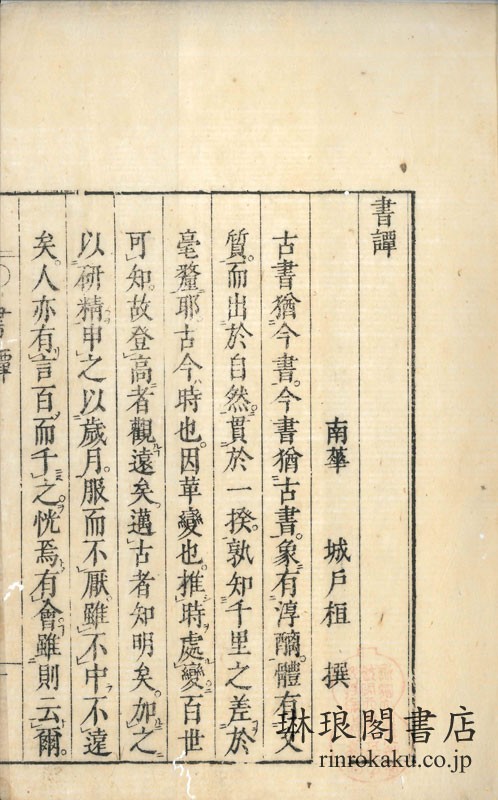 書譚
南華　城戸桓　撰
古書猶今書。今書猶古書。象有淳醨。體有文
質。而出於自然。貫於一揆。孰知千里之差於
毫釐耶。古今時也。因革變也。推時處變。百世
可知。故登高者觀遠矣。邁古者知明矣。加之
以研精。申之以歲月。服而不厭。雖不中不遠
矣。人亦有言。百而千之。恍焉有會。雖則云爾。
書譚
琳琅閣書店
rinrokaku.co.jp